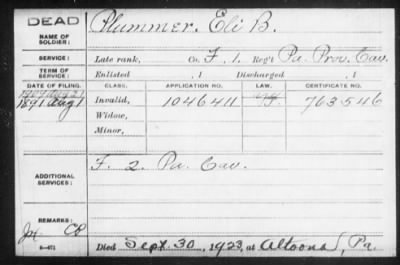 DEAD
NAME OF SOLDIER: Plummer, Eli B.
SERVICE: Late rank, Co. F, 1 Reg't Pa. Prov. Cav.
TERM OF SERVICE: Enlisted , 1 Discharged , 1
DATE OF FILING. CLASS. APPLICATION NO. LAW. CERTIFICATE NO.
1891 Aug 1 Invalid, 1046411 763546
Widow,
Minor,
ADDITIONAL SERVICES: F. 2. Pa. Cav.
REMARKS:
Died Sept. 30, 1923, at Altoona, Pa.